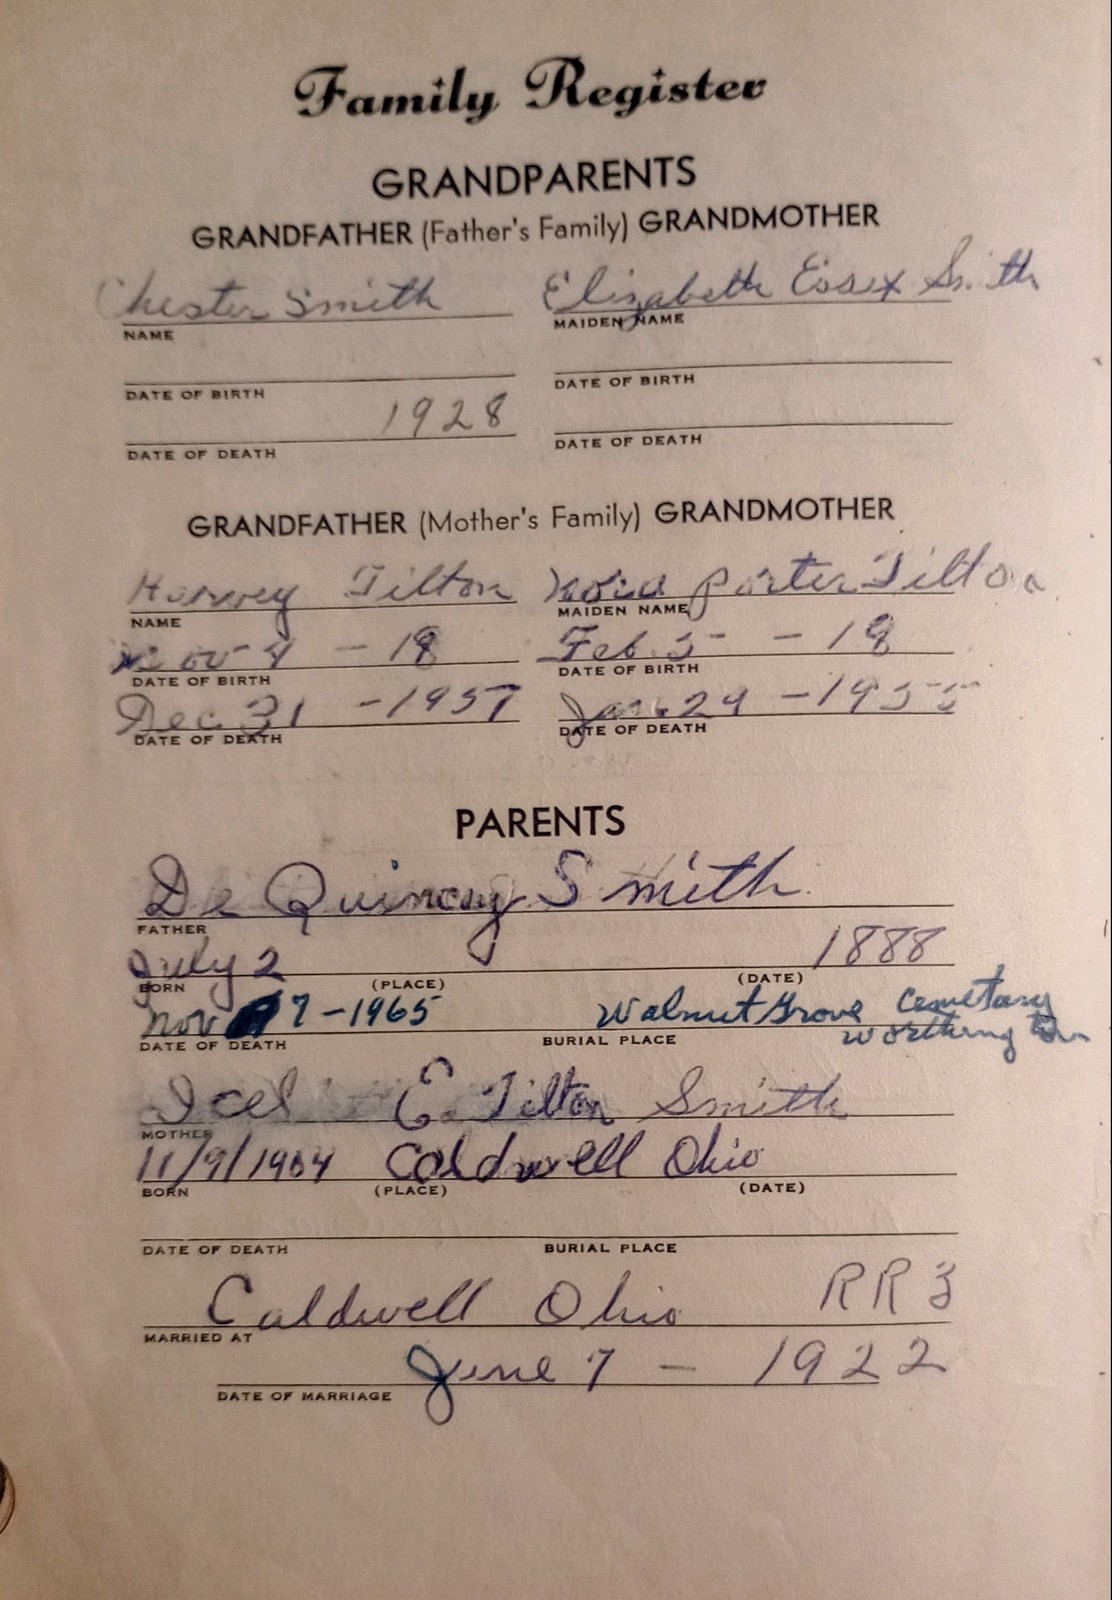 Family Register
GRANDPARENTS
GRANDFATHER (Father's Family) GRANDMOTHER
Chester Smith Elizabeth Essex Smith
NAME MAIDEN NAME
DATE OF BIRTH DATE OF BIRTH
1928
DATE OF DEATH DATE OF DEATH
GRANDFATHER (Mother's Family) GRANDMOTHER
Harvey Tilton Nora Porter Tilton
NAME MAIDEN NAME
Nov 4 - 18 Feb 5 - 18
DATE OF BIRTH DATE OF BIRTH
Dec 31 - 1957 Jan 29 - 1955
DATE OF DEATH DATE OF DEATH
PARENTS
De Quincey Smith
FATHER
July 2 1888
BORN (PLACE) (DATE)
Nov 7-1965 Walnut Grove Cemetary
Worthington
DATE OF DEATH BURIAL PLACE
Icel E. Tilton Smith
MOTHER
11/9/1904 Caldwell Ohio
BORN (PLACE) (DATE)
DATE OF DEATH BURIAL PLACE
Caldwell Ohio RR3
MARRIED AT
June 7 - 1922
DATE OF MARRIAGE